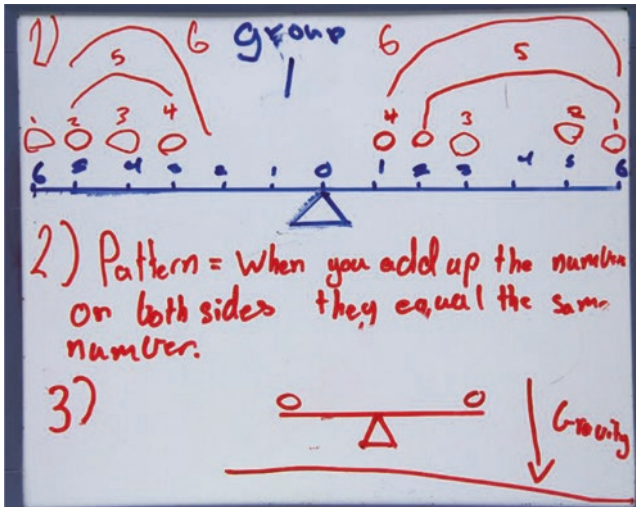 1) 6 group 6
5 1 5
1 2 3 4 4 3 2 1
6 5 4 3 2 1 0 1 2 3 4 5 6
2) Pattern = When you add up the number
on both sides they equal the same
number.
3)
Gravity